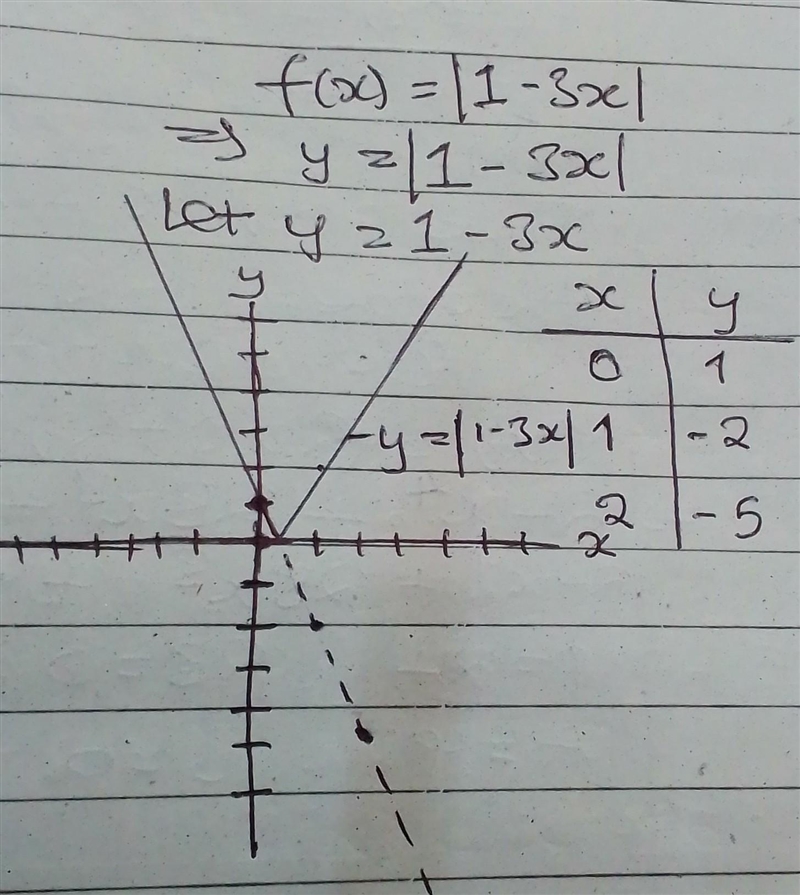 f(x) = |1 - 3x|
⇒ y = |1 - 3x|
Let y = 1 - 3x
y
x | y
0 | 1
y = |1-3x|
1 | -2
2 | -5
x